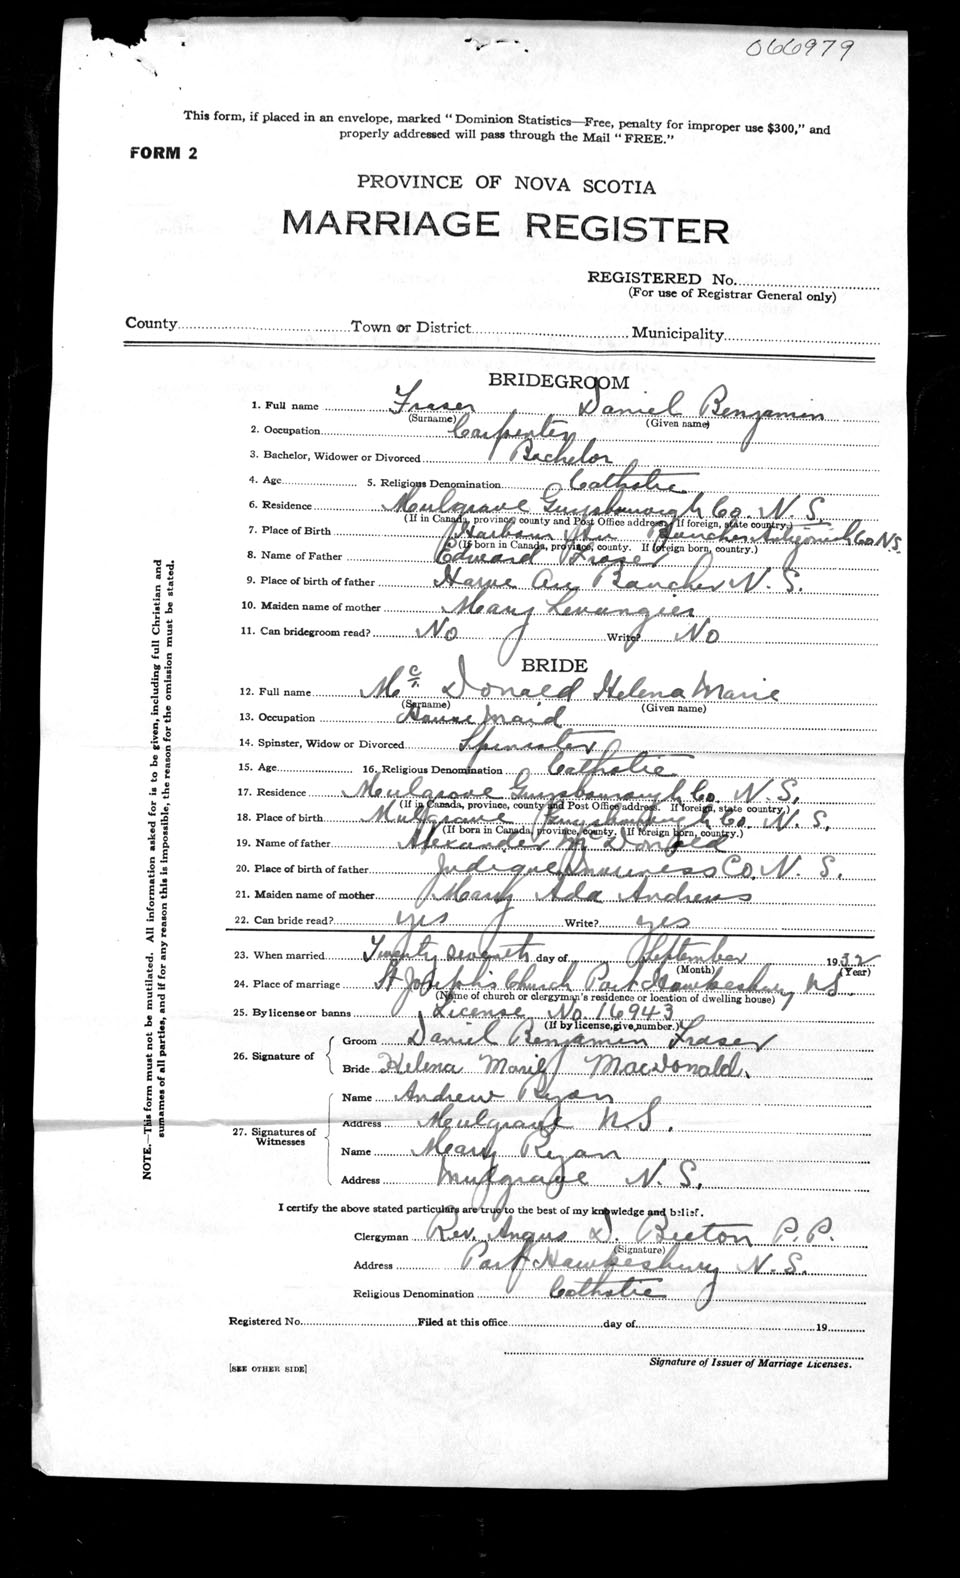 066979
This form, if placed in an envelope, marked "Dominion Statistics—Free, penalty for improper use $300," and
properly addressed will pass through the Mail "FREE."
FORM 2
PROVINCE OF NOVA SCOTIA
MARRIAGE REGISTER
REGISTERED No.
(For use of Registrar General only)
County Town or District Municipality
BRIDEGROOM
1. Full name Fraser Daniel Benjamin
(Surname) (Given name)
2. Occupation Carpenter
3. Bachelor, Widower or Divorced Bachelor
4. Age 5. Religious Denomination Catholic
6. Residence Mulgrave Guysborough Co. N. S.
(If in Canada, province, county and Post Office address. If foreign, state country.)
7. Place of Birth Harbour Au Boucher Antigonish Co N.S.
(If born in Canada, province, county. If foreign born, country.)
8. Name of Father Edward Fraser
9. Place of birth of father Au Boucher N. S.
10. Maiden name of mother Mary Levangier
11. Can bridegroom read? No Write? No
BRIDE
12. Full name Mc Donald Helena Marie
(Surname) (Given name)
13. Occupation House Maid
14. Spinster, Widow or Divorced Spinster
15. Age 16. Religious Denomination Catholic
17. Residence Mulgrave Guysborough Co. N. S.
(If in Canada, province, county and Post Office address. If foreign, state country.)
18. Place of birth Mulgrave Guysborough Co. N. S.
(If born in Canada, province, county. If foreign born, country.)
19. Name of father Alexander McDonald
20. Place of birth of father Judique Inverness Co. N. S.
21. Maiden name of mother Mary Ada Andrews
22. Can bride read? yes Write? yes
23. When married Twenty seventh day of September 1932
(Month) (Year)
24. Place of marriage St Joseph's Church Port Hawkesbury N S.
(Name of church or clergyman's residence or location of dwelling house)
25. By license or banns License No. 16943
(If by license, give number.)
26. Signature of Groom Daniel Benjamin Fraser
Bride Helena Marie MacDonald.
27. Signatures of Witnesses
Name Andrew Ryan
Address Mulgrave N S.
Name Mary Ryan
Address Mulgrave N. S.
I certify the above stated particulars are true to the best of my knowledge and belief.
Clergyman Rev. Angus D. Beaton P. P.
(Signature)
Address Port Hawkesbury N. S.
Religious Denomination Catholic
Registered No. Filed at this office day of 19
Signature of Issuer of Marriage Licenses.
[SEE OTHER SIDE]
NOTE.—This form must not be mutilated. All information asked for is to be given, including full Christian and
surnames of all parties, and if for any reason this is impossible, the reason for the omission must be stated.